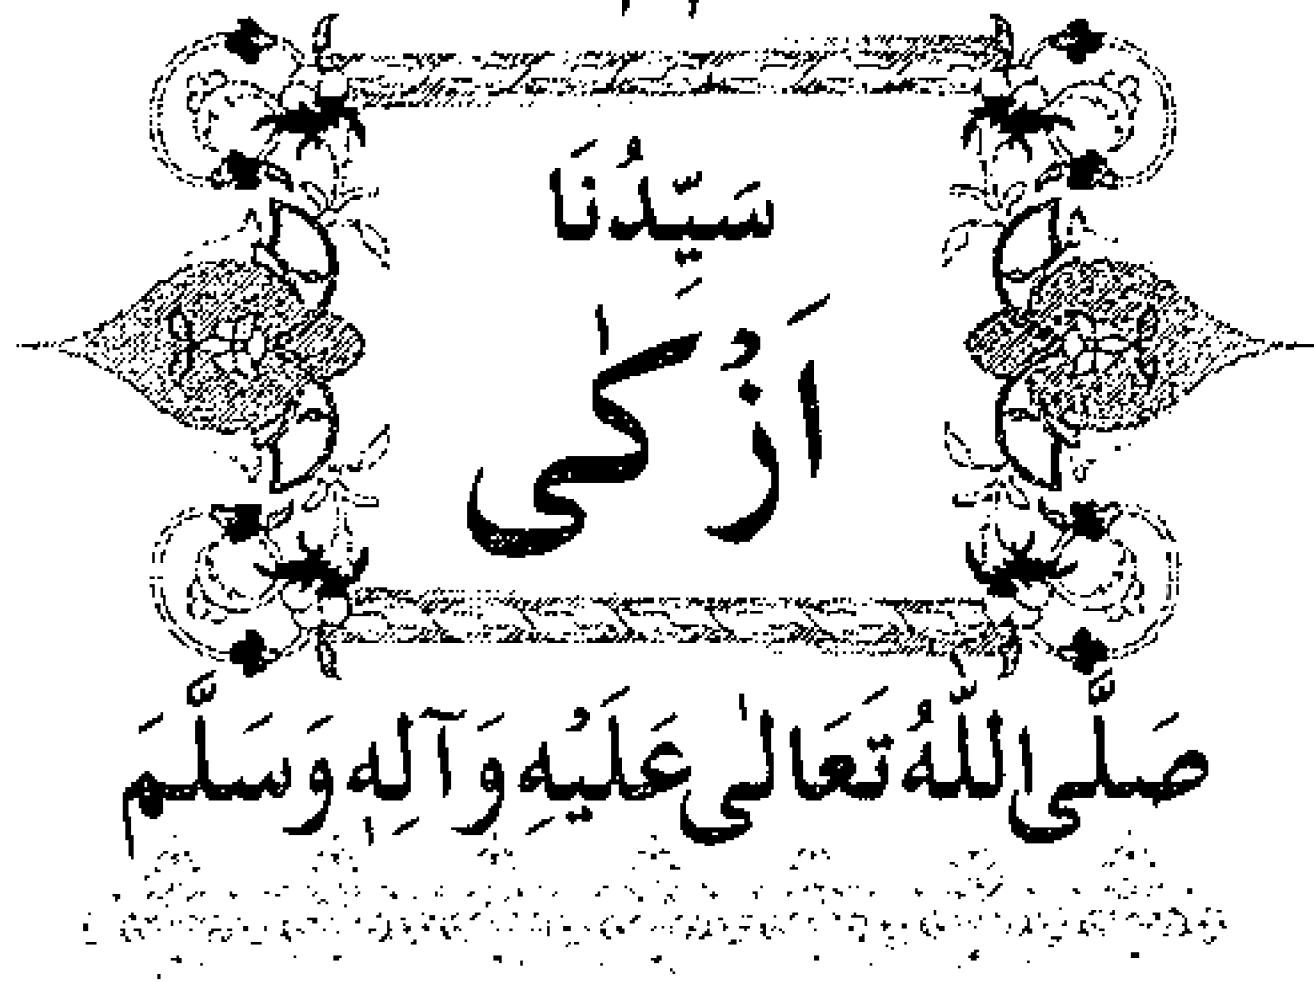 سَيِّدُنَا
اَزْکٰی
صَلَّی اللّٰهُ تَعَالٰی عَلَيْهِ وَآلِهٖ وَسَلَّمَ